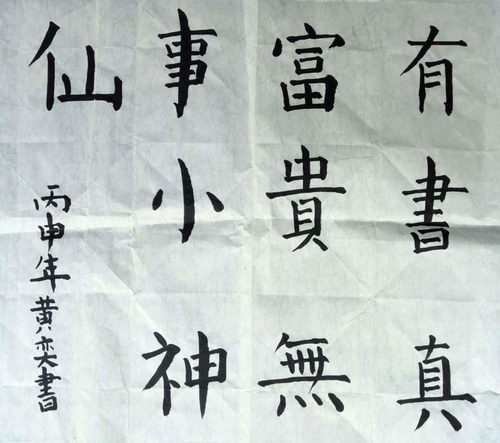 有書真
富貴無
事小神
仙
丙申年黃奕書